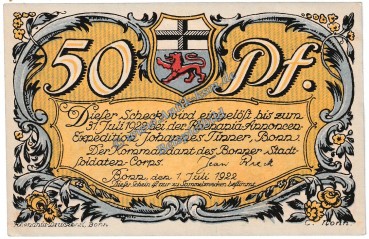 50 Pf.
Dieser Scheck wird eingelöst bis zum
31. Juli 1922 bei der Rhenania-Annoncen-
Expedition Johannes Tinner, Bonn.
Der Kommandant des Bonner Stadt-
soldaten-Corps. Jean
Bonn, den 1. Juli 1922
Dieser Schein ist nur zu Sammelzwecken bestimmt
Rhenania-Druckerei, Bonn
C. Nonn.